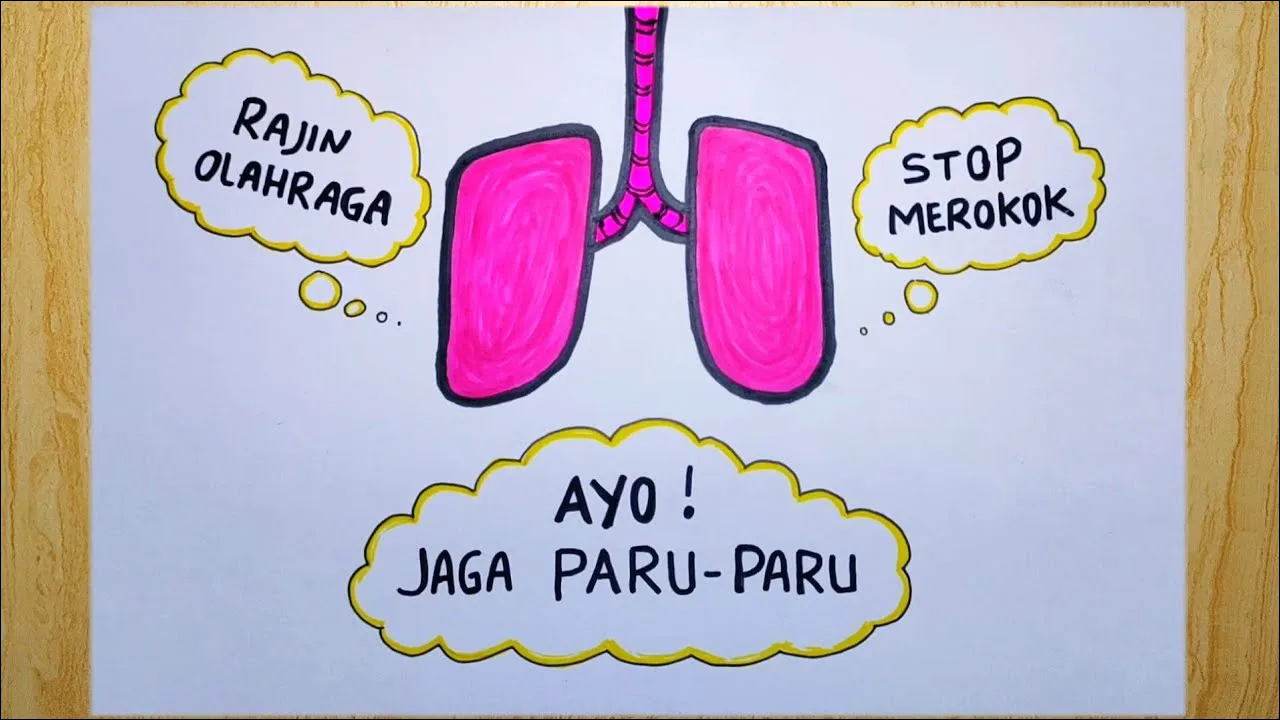 RAJIN
OLAHRAGA
STOP
MEROKOK
AYO!
JAGA PARU-PARU